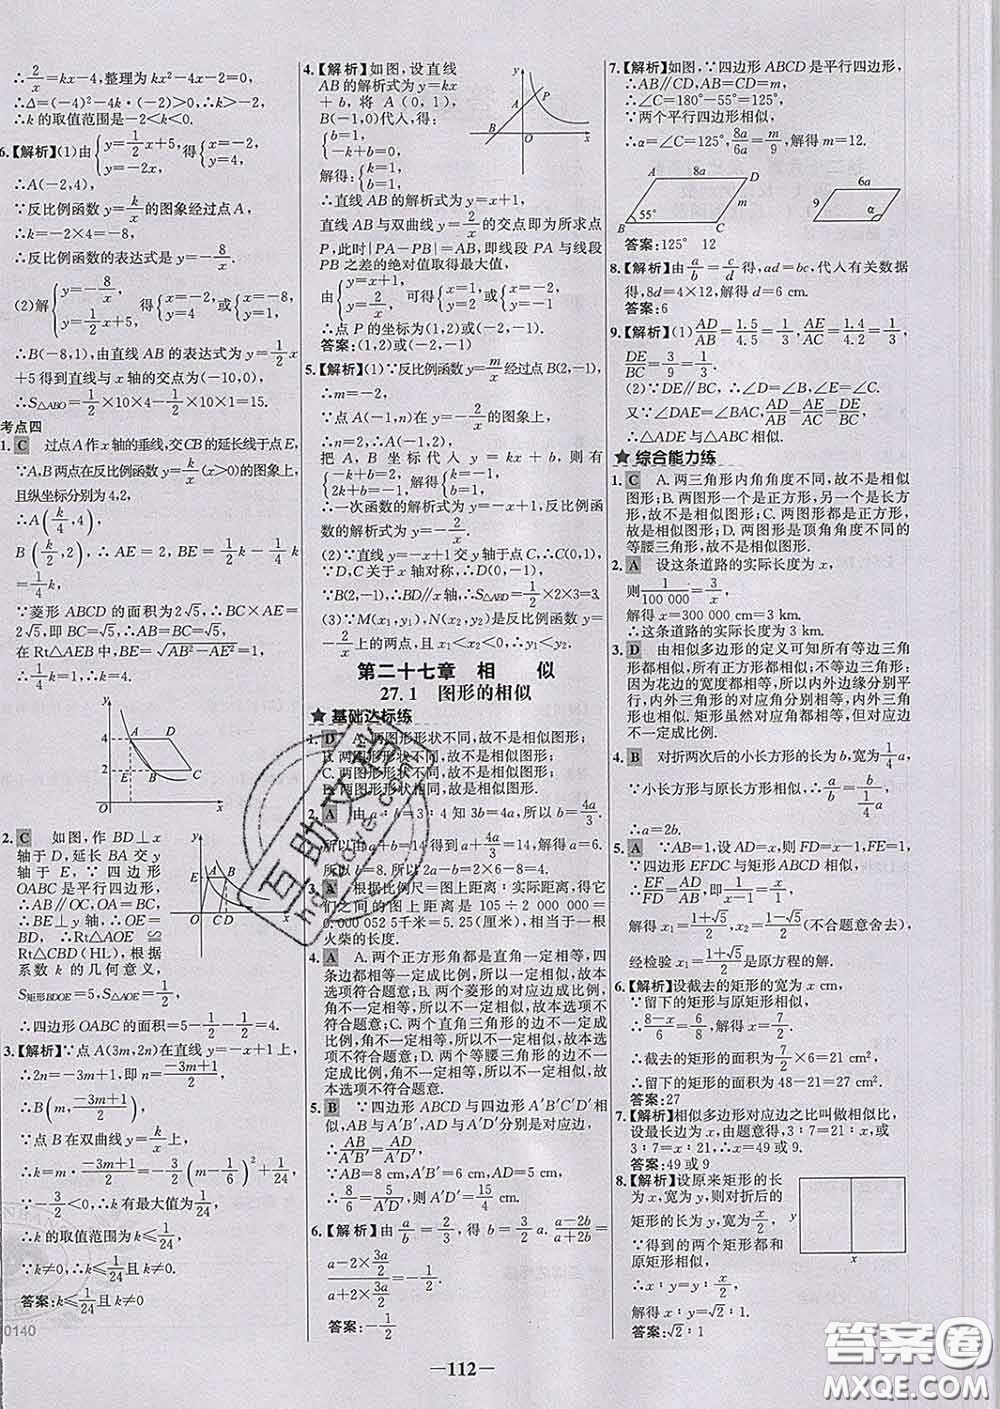 ∴2/x=kx-4,整理为kx²-4x-2=0,
∴Δ=(-4)²-4k·(-2)>0,∴k>-2,
∴k的取值范围是-2<k<0.
6.【解析】(1)由{y=1/2x+5, y=-2x, 得{x=-2, y=4,
∴A(-2,4),
∵反比例函数y=k/x的图象经过点A,
∴k=-2×4=-8,
∴反比例函数的表达式是y=-8/x.
(2)解{y=-8/x, y=1/2x+5, 得{x=-2, y=4 或{x=-8, y=1,
∴B(-8,1),由直线AB的表达式为y=1/2x
+5得到直线与x轴的交点为(-10,0),
∴S△ABO=1/2×10×4-1/2×10×1=15.
考点四
1. C 过点A作x轴的垂线,交CB的延长线于点E,
∵A,B两点在反比例函数y=k/x(x>0)的图象上,
且纵坐标分别为4,2,
∴A(k/4,4),
B(k/2,2),∴AE=2,BE=1/2k-1/4k=
1/4k,
∵菱形ABCD的面积为2√5,∴BC×AE=
2√5,即BC=√5,∴AB=BC=√5,
在Rt△AEB中,BE=√(AB²-AE²)=1,
∴1/4k=1,∴k=4.
y
4 A D
2 E B C
O x
2. C 如图,作BD⊥x
轴于D,延长BA交y
轴于E,∵四边形
OABC是平行四边形,
∴AB∥OC,OA=BC,
∴BE⊥y轴,∴OE=
BD,∴Rt△AOE≌
Rt△CBD(HL),根据
系数k的几何意义,
S矩形BDOE=5,S△AOE=1/2,
∴四边形OABC的面积=5-1/2-1/2=4.
y
E A B
O C D x
3.【解析】∵点A(3m,2n)在直线y=-x+1上,
∴2n=-3m+1,即n=(-3m+1)/2,
∴B(m,(-3m+1)/2),
∵点B在双曲线y=k/x上,
∴k=m·(-3m+1)/2=-3/2(m-1/6)²+1/24,
∵-3/2<0,∴k有最大值为1/24,
∴k的取值范围为k≤1/24,
∵k≠0,∴k≤1/24且k≠0.
答案:k≤1/24且k≠0
0140
4.【解析】如图,设直线
AB的解析式为y=kx
+b,将A(0,1),
B(-1,0)代入,得:
{b=1, -k+b=0,
解得:{k=1, b=1,
y
A P
B O x
∴直线AB的解析式为y=x+1,
直线AB与双曲线y=2/x的交点即为所求点
P,此时|PA-PB|=AB,即线段PA与线段
PB之差的绝对值取得最大值,
由{y=x+1, y=2/x, 可得{x=1, y=2 或{x=-2, y=-1,
∴点P的坐标为(1,2)或(-2,-1).
答案:(1,2)或(-2,-1)
5.【解析】(1)∵反比例函数y=m/x经过点B(2,-1),
∴m=-2,
∵点A(-1,n)在y=-2/x的图象上,
∴n=2,∴A(-1,2),
把A,B坐标代入y=kx+b,则有
{-k+b=2, 2k+b=-1, 解得{k=-1, b=1,
∴一次函数的解析式为y=-x+1,反比例
函数的解析式为y=-2/x.
(2)∵直线y=-x+1交y轴于点C,∴C(0,1),
∵D,C关于x轴对称,∴D(0,-1),
∵B(2,-1),∴BD∥x轴,∴S△ABD=1/2×2×3=3.
(3)∵M(x₁,y₁),N(x₂,y₂)是反比例函数y=
-2/x上的两点,且x₁<x₂<0,∴y₁<y₂.
第二十七章 相 似
27.1 图形的相似
★ 基础达标练
1. D A.两图形形状不同,故不是相似图形;
B.两图形形状不同,故不是相似图形;
C.两图形形状不同,故不是相似图形;
D.两图形形状相同,故是相似图形.
2. A 由a:b=3:4知3b=4a,所以b=4a/3.
所以由a+b=14得到a+4a/3=14,解得a=6.
所以b=8.所以a-b=6-8=-2.
3. A 根据比例尺=图上距离:实际距离,得它
们之间的图上距离是105÷2 000 000=
0.000 052 5千米=5.25(厘米),相当于一根
火柴的长度.
4. A A.两个正方形角都是直角一定相等,四
条边都相等一定成比例,所以一定相似,故本
选项符合题意;B.两个菱形的对应边成比例,
角不一定相等,所以不一定相似,故本选项不
符合题意;C.两个直角三角形的边不一定成
比例,角不一定相等,所以不一定相似,故本
选项不符合题意;D.两个等腰三角形的边不
一定成比例,角不一定相等,所以不一定相似,
故本选项不符合题意.
5. B ∵四边形ABCD与四边形A′B′C′D′相
似,AB与A′B′,AD与A′D′分别是对应边,
∴AB/A′B′=AD/A′D′,
∵AB=8 cm,A′B′=6 cm,AD=5 cm,
∴8/6=5/A′D′,则A′D′=15/4 cm.
6.【解析】由a/b=2/3,得b=3/2a.(a-2b)/(a+2b)=
(a-2×3a/2)/(a+2×3a/2)=-1/2.
答案:-1/2
7.【解析】如图,∵四边形ABCD是平行四边形,
∴AB∥CD,AB=CD=m,
∴∠C=180°-55°=125°,
∵两个平行四边形相似,
∴α=∠C=125°,8a/6a=m/9,解得m=12.
A 8a D
55° m
B C
6a
9 α
答案:125° 12
8.【解析】由a/b=c/d得,ad=bc,代入有关数据
得,8d=4×12,解得d=6 cm.
答案:6
9.【解析】(1)AD/AB=1.5/4.5=1/3,AE/AC=1.4/4.2=1/3,
DE/BC=3/9=1/3.
(2)∵DE∥BC,∴∠D=∠B,∠E=∠C,
又∵∠DAE=∠BAC,AD/AB=AE/AC=DE/BC,
∴△ADE与△ABC相似.
★ 综合能力练
1. C A.两三角形内角角度不同,故不是相似
图形;B.两图形一个是正方形,另一个是长方
形,故不是相似图形;C.两图形都是正方形,
故是相似图形;D.两图形是顶角角度不同的
等腰三角形,故不是相似图形.
2. A 设这条道路的实际长度为x,
则1/100 000=3/x,
解得x=300 000 cm=3 km.
∴这条道路的实际长度为3 km.
3. D 由相似多边形的定义可知所有等边三角
形都相似,所有正方形都相似,所有圆都相
似;因为花边的宽度都相等,所以等边三角形,
内外正方形,内外圆都相似.而矩形的长宽
比不一定相等,矩形虽然对应角相等但对应边
不一定成比例.
4. B 对折两次后的小长方形的长为b,宽为1/4a,
∵小长方形与原长方形相似,∴a/b=b/(1/4a),
∴a=2b.
5. A ∵AB=1,设AD=x,则FD=x-1,FE=1,
∵四边形EFDC与矩形ABCD相似,
∴EF/FD=AD/AB,即1/(x-1)=x/1,
解得x₁=(1+√5)/2,x₂=(1-√5)/2(不合题意舍去),
经检验x₁=(1+√5)/2是原方程的解.
6.【解析】设截去的矩形的宽为x cm,
∵留下的矩形与原矩形相似,
∴(8-x)/6=6/8,解得:x=7/2,
∴截去的矩形的面积为7/2×6=21 cm²,
∴留下的矩形的面积为48-21=27 cm².
答案:27
7.【解析】相似多边形对应边之比叫做相似比,
设最长边为x,由题意得,3:7=21:x或
3:7=x:21,∴x=49或9.
答案:49或9
8.【解析】设原来矩形的长
为x,宽为y,则对折后的
矩形的长为y,宽为x/2,
∵得到的两个矩形都和
原矩形相似,
∴x:y=y:x/2,
解得x:y=√2:1.
答案:√2:1
y
x
—112—
互助文增
hdzove.com
答案圈
MXQE.COM